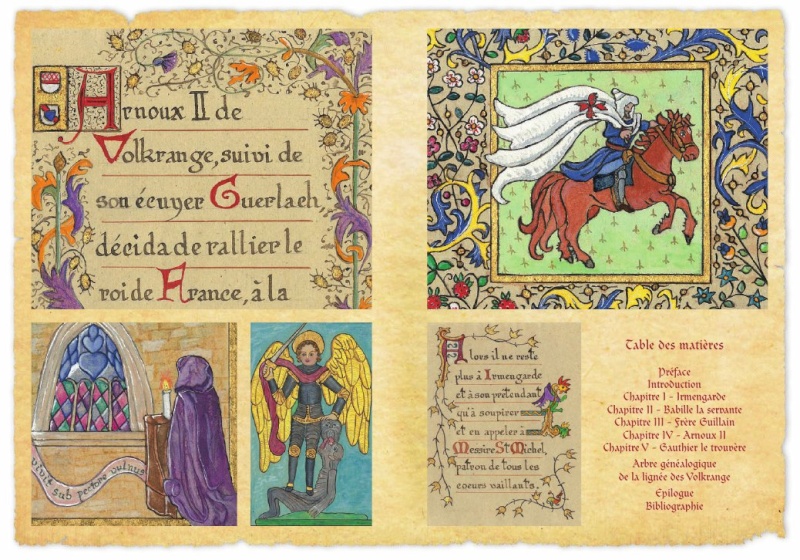 Arnoux II de
Volkrange, suivi de
son écuyer Guerlach,
décida de rallier le
roi de France, à la
vivit sub pectore vulnus
Alors il ne reste
plus à Irmengarde
et à son prétendant
qu'à soupirer
et en appeler à
Messire St Michel,
patron de tous les
coeurs vaillants.
Table des matières
Préface
Introduction
Chapitre I - Irmengarde
Chapitre II - Babille la servante
Chapitre III - Frère Guillain
Chapitre IV - Arnoux II
Chapitre V - Gauthier le trouvère
Arbre généalogique
de la lignée des Volkrange
Épilogue
Bibliographie